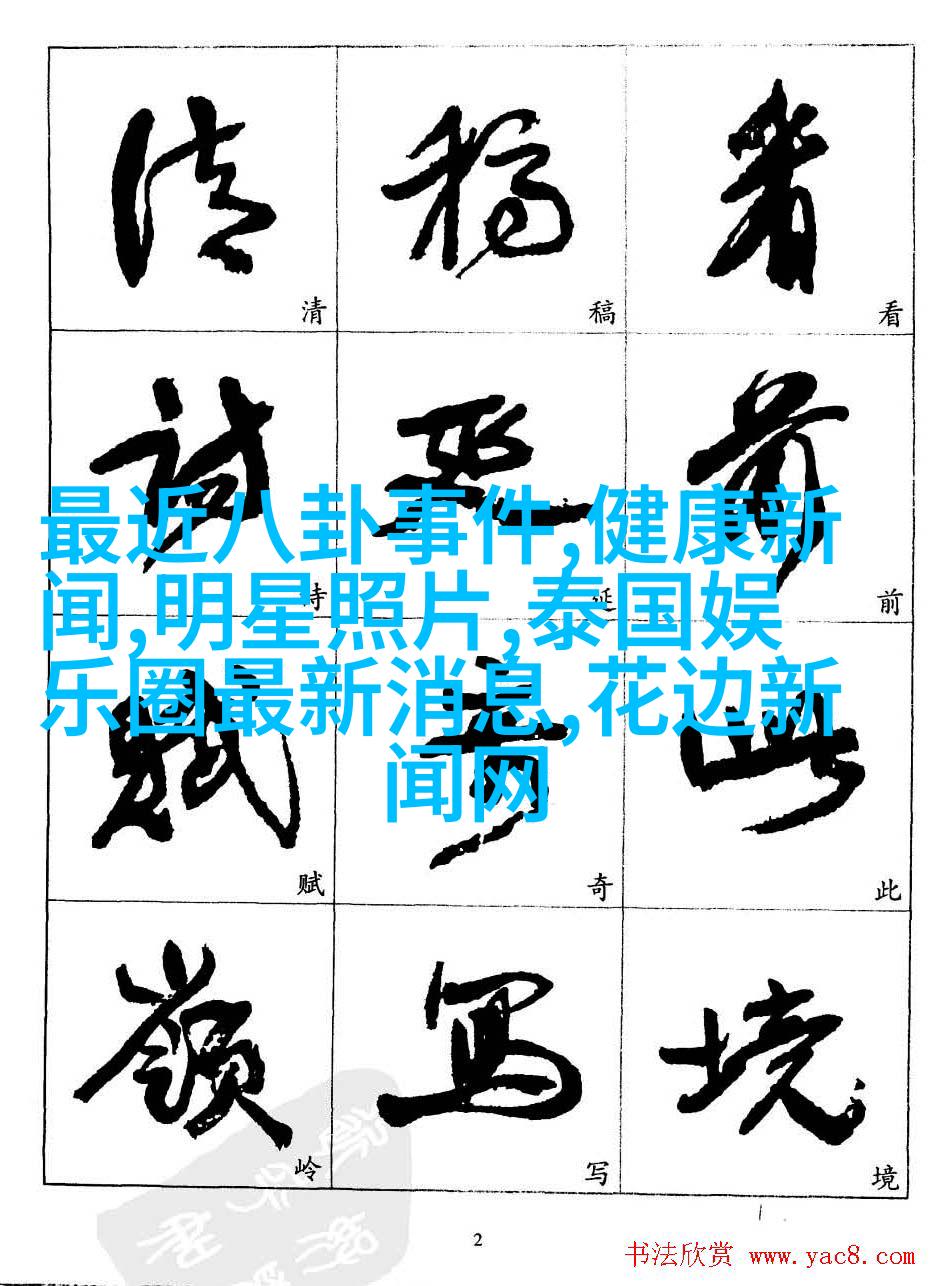 清 稿 看
诗 延 前
最近八卦事件,健康新
闻,明星照片,泰国娱
乐圈最新消息,花边新
闻网
赋 奇 此
岭 写 境
2
书法欣赏 www.yac8.com